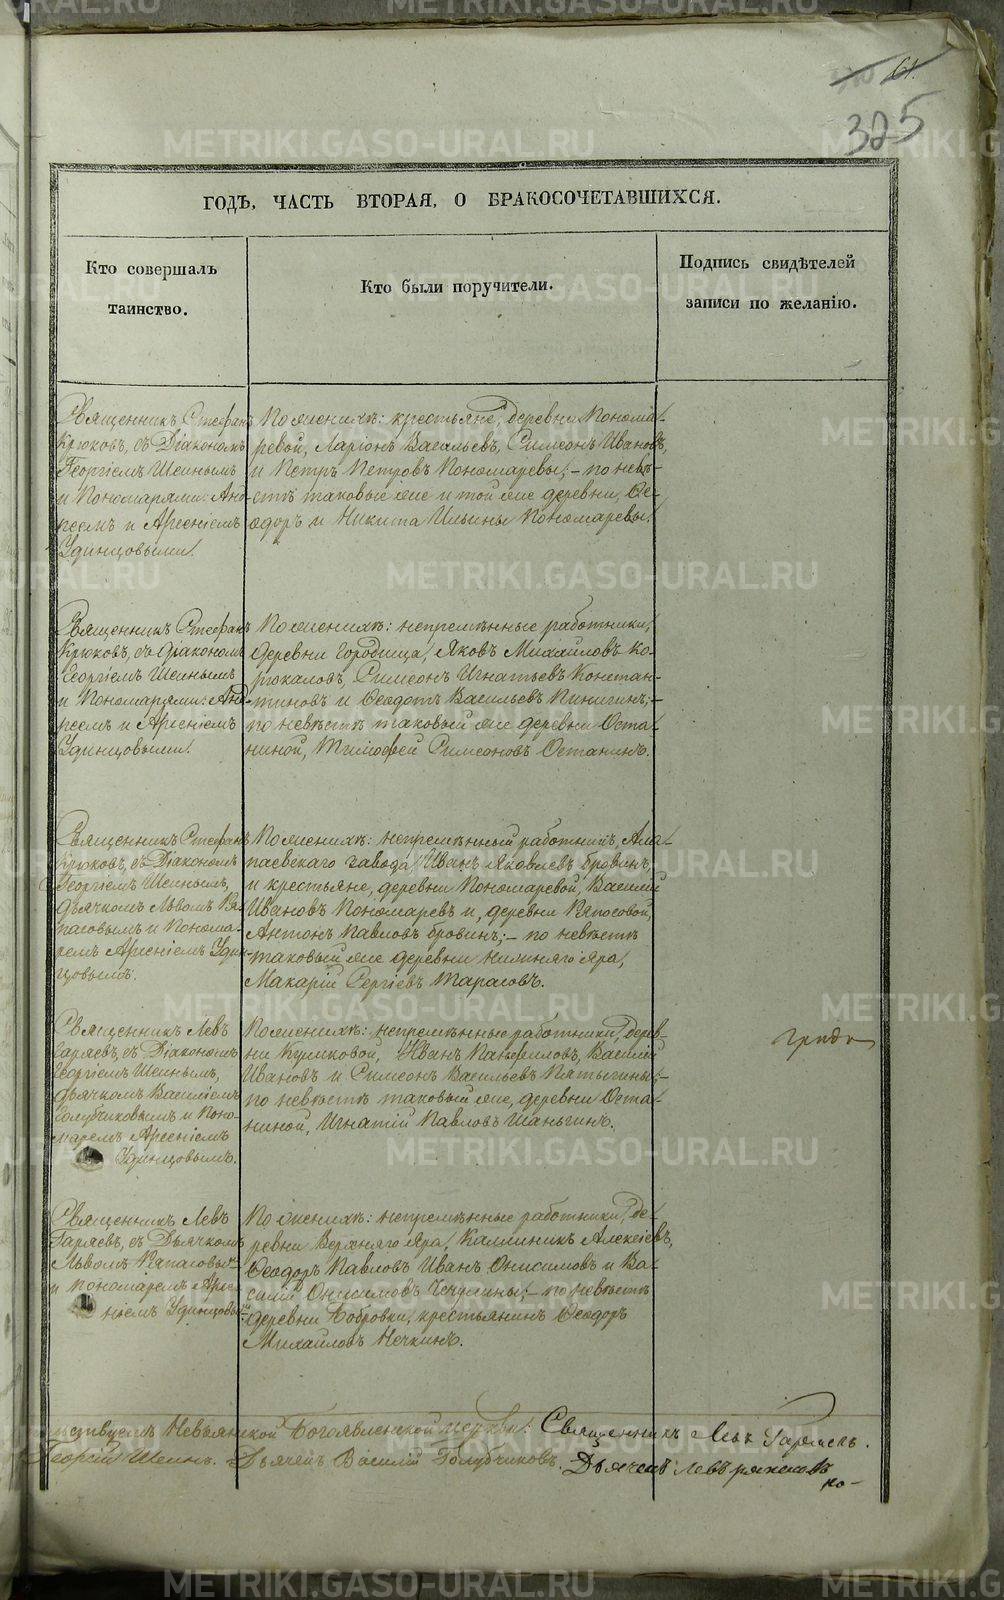 61.
325
ГОДѢ, ЧАСТЬ ВТОРАЯ, О БРАКОСОЧЕТАВШИХСЯ.
Кто совершалъ
таинство.
Кто были поручители.
Подпись свидѣтелей
записи по желанію.
Священникъ Стефанъ
Крюковъ, съ Діакономъ
Георгіемъ Шеинымъ
и Пономарями: Анд-
реемъ и Арсеніемъ
Удинцовыми.
По женихѣ: крестьяне, деревни Понома-
ревой, Ларіонъ Васильевъ, Симеонъ Ивановъ,
и Петръ Петровъ Пономаревы; – по невѣ-
стѣ таковые же и той же деревни, Ѳе-
одоръ и Никита Ильины Пономаревы.
Священникъ Стефанъ
Крюковъ, съ Діакономъ
Георгіемъ Шеинымъ
и Пономарями: Анд-
реемъ и Арсеніемъ
Удинцовыми.
По женихѣ: непремѣнные работники,
деревни Городища, Яковъ Михайловъ Ко-
рюкаловъ, Симеонъ Игнатьевъ Констан-
тиновъ и Ѳеодотъ Васильевъ Пинигинъ; –
по невѣстѣ таковый же деревни Оста-
ниной, Тимофей Симеоновъ Останинъ.
Священникъ Стефанъ
Крюковъ, съ Діакономъ
Георгіемъ Шеинымъ,
дьячкомъ Львомъ Ря-
пасовымъ и Понома-
ремъ Арсеніемъ Удин-
цовымъ.
По женихѣ: непремѣнный работникъ, Ала-
паевскаго завода, Иванъ Яковлевъ Бровинъ,
и крестьяне, деревни Пономаревой, Василій
Ивановъ Пономаревъ и, деревни Ряпосовой,
Антонъ Павловъ Бровинъ; – по невѣстѣ
таковый же деревни Нижняго Яра,
Макарій Сергіевъ Тарасовъ.
Священникъ Левъ
Гаряевъ, съ Діакономъ
Георгіемъ Шеинымъ,
дьячкомъ Василіемъ
Голубчиковымъ и Поно-
маремъ Арсеніемъ
Удинцовымъ.
По женихѣ: непремѣнные работники, дерев-
ни Куликовой, Иванъ Панфиловъ, Василій
Ивановъ и Симеонъ Васильевъ Пятыгины; –
по невѣстѣ таковый же, деревни Оста-
ниной, Игнатій Павловъ Шаньгинъ.
Священникъ Левъ
Гаряевъ, съ Дьячкомъ
Львомъ Ряпасовымъ
и пономаремъ Арсе-
ніемъ Удинцовымъ.
По женихѣ: непремѣнные работники, де-
ревни Верхняго Яра, Каллиникъ Алексіевъ,
Ѳеодоръ Павловъ Иванъ Онисимовъ и Ва-
силій Онисимовъ Чечулины; – по невѣстѣ
деревни Бобровки, крестьянинъ Ѳеодоръ
Михайловъ Нечкинъ.
Невьянской Богоявленской церкви: Священникъ Левъ Гаряевъ.
Георгій Шеинъ. Дьячекъ Василій Голубчиковъ. Дьячекъ Левъ Ряпасовъ
по-
METRIKI.GASO-URAL.RU